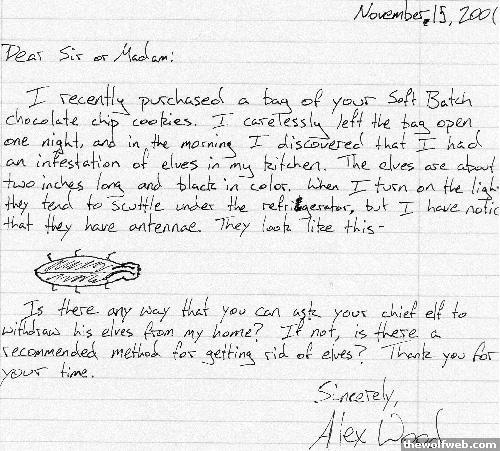 November 15, 2001
Dear Sir or Madam:
I recently purchased a bag of your Soft Batch
chocolate chip cookies. I carelessly left the bag open
one night, and in the morning I discovered that I had
an infestation of elves in my kitchen. The elves are about
two inches long and black in color. When I turn on the ligh
they tend to scuttle under the refrigerator, but I have notic
that they have antennae. They look like this-
Is there any way that you can ask your chief elf to
withdraw his elves from my home? If not, is there a
recommended method for getting rid of elves? Thank you for
your time.
Sincerely,
Alex Wood
thewolfweb.com